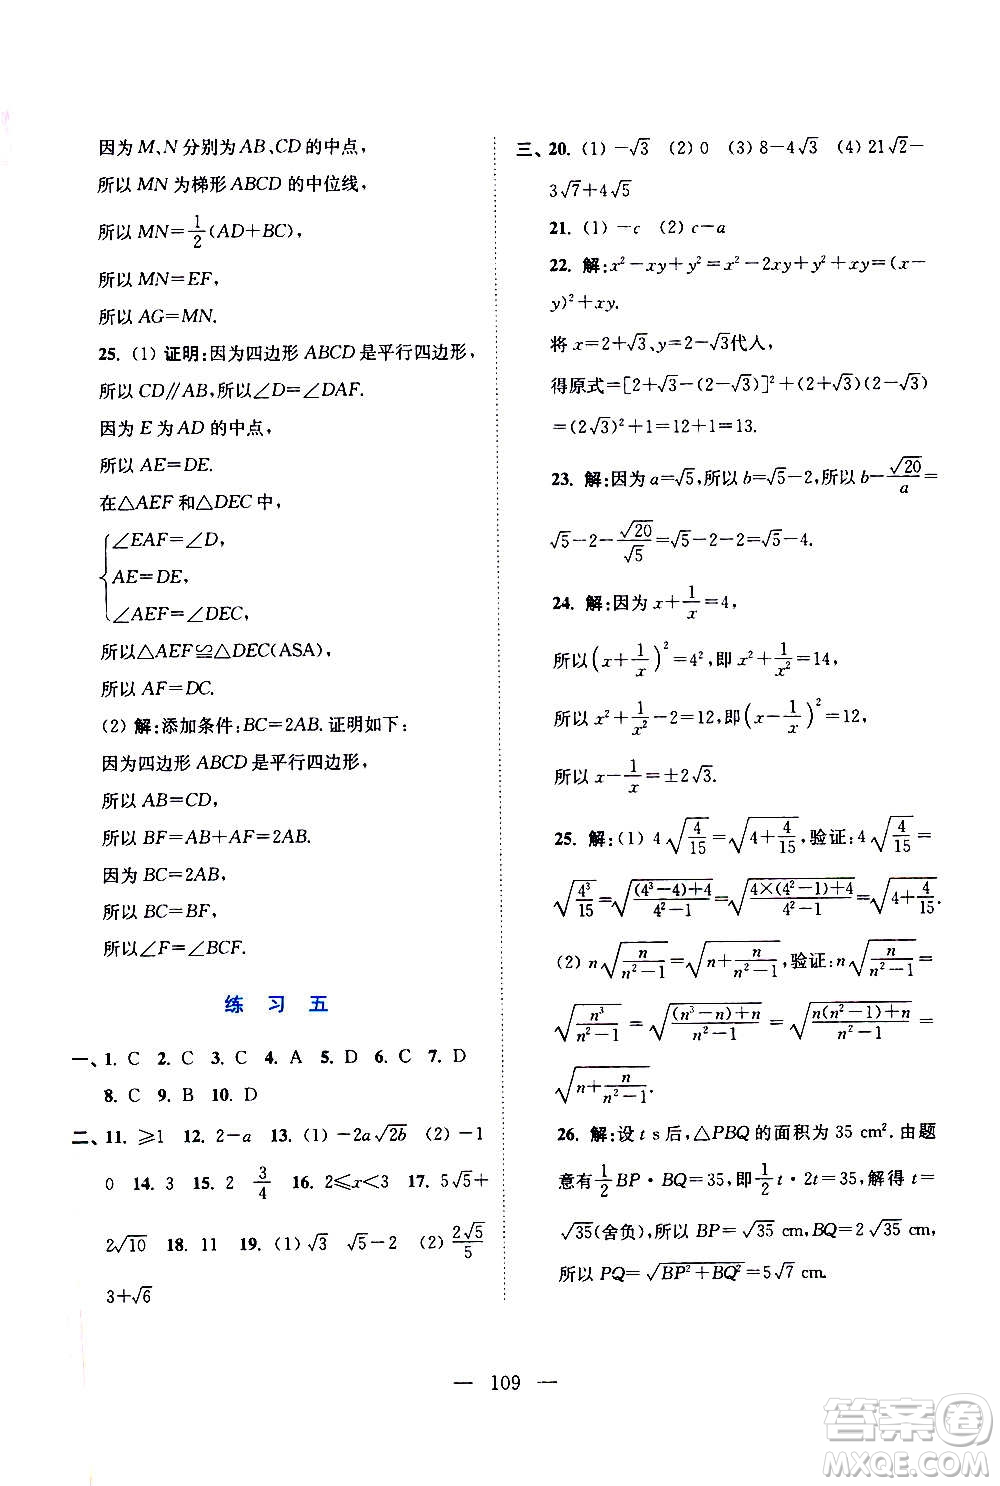 因为 M、N 分别为 AB、CD 的中点，
所以 MN 为梯形 ABCD 的中位线，
所以 MN=\frac{1}{2}(AD+BC)，
所以 MN=EF，
所以 AG=MN.
25. (1) 证明:因为四边形 ABCD 是平行四边形，
所以 CD∥AB，所以∠D=∠DAF.
因为 E 为 AD 的中点，
所以 AE=DE.
在△AEF 和△DEC 中，
∠EAF=∠D，
AE=DE，
∠AEF=∠DEC，
所以△AEF≌△DEC(ASA)，
所以 AF=DC.
(2) 解:添加条件:BC=2AB. 证明如下:
因为四边形 ABCD 是平行四边形，
所以 AB=CD，
所以 BF=AB+AF=2AB.
因为 BC=2AB，
所以 BC=BF，
所以∠F=∠BCF.
练 习 五
一、1. C 2. C 3. C 4. A 5. D 6. C 7. D
8. C 9. B 10. D
二、11. ≥1 12. 2-a 13. (1) -2a√2b (2) -1
0 14. 3 15. 2 \frac{3}{4} 16. 2≤x<3 17. 5√5+
2√10 18. 11 19. (1) √3 √5-2 (2) \frac{2√5}{5}
3+√6
三、20. (1) -√3 (2) 0 (3) 8-4√3 (4) 21√2-
3√7+4√5
21. (1) -c (2) c-a
22. 解:x²-xy+y²=x²-2xy+y²+xy=(x-
y)²+xy.
将 x=2+√3、y=2-√3代入，
得原式=[2+√3-(2-√3)]²+(2+√3)(2-√3)
=(2√3)²+1=12+1=13.
23. 解:因为 a=√5，所以 b=√5-2，所以 b-\frac{√20}{a}=
√5-2-\frac{√20}{√5}=√5-2-2=√5-4.
24. 解:因为 x+\frac{1}{x}=4，
所以(x+\frac{1}{x})²=4²，即 x²+\frac{1}{x²}=14，
所以 x²+\frac{1}{x²}-2=12，即(x-\frac{1}{x})²=12，
所以 x-\frac{1}{x}=±2√3.
25. 解:(1) 4\sqrt{\frac{4}{15}}=\sqrt{4+\frac{4}{15}}，验证:4\sqrt{\frac{4}{15}}=
\sqrt{\frac{4³}{15}}=\sqrt{\frac{(4³-4)+4}{4²-1}}=\sqrt{\frac{4×(4²-1)+4}{4²-1}}=\sqrt{4+\frac{4}{15}}.
(2) n\sqrt{\frac{n}{n²-1}}=\sqrt{n+\frac{n}{n²-1}}，验证:n\sqrt{\frac{n}{n²-1}}=
\sqrt{\frac{n³}{n²-1}}=\sqrt{\frac{(n³-n)+n}{n²-1}}=\sqrt{\frac{n(n²-1)+n}{n²-1}}=
\sqrt{n+\frac{n}{n²-1}}.
26. 解:设 t s后，△PBQ 的面积为 35 cm². 由题
意有\frac{1}{2}BP·BQ=35，即\frac{1}{2}t·2t=35，解得 t=
√35(舍负)，所以 BP=√35 cm，BQ=2√35 cm，
所以 PQ=\sqrt{BP²+BQ²}=5√7 cm.
— 109 —
答案圈
MXQE.COM